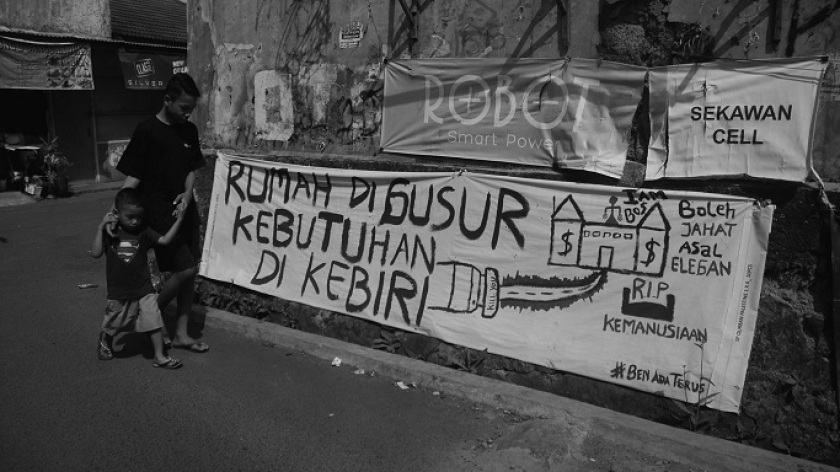 SILVER
ROBOT
Smart Power
SEKAWAN
CELL
RUMAH DI GUSUR
KEBUTUHAN
DI KEBIRI
KILL YOU
I AM
BOS
DEPOK
$ $
BOLEH
JAHAT
ASAL
ELEGAN
RIP
KEMANUSIAAN
#BEN ADA TERUS